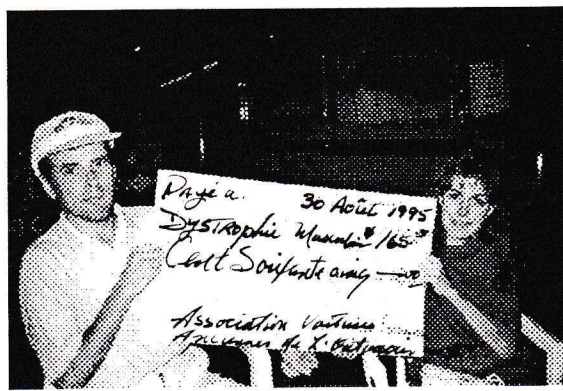 Payé a. 30 Août 1995
Dystrophie Musculair $165.
Cent Soixante cinq —
Association Voitures
Anciennes de L'